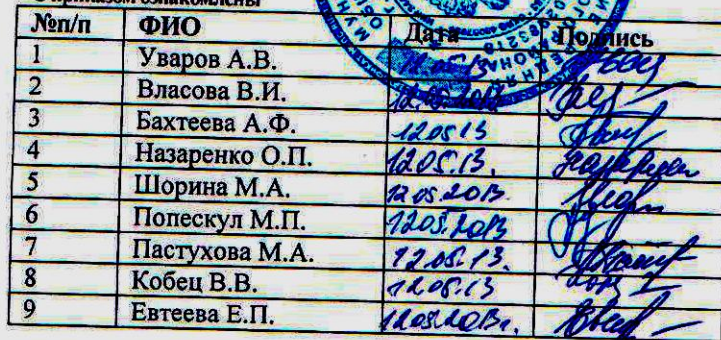 С приказом ознакомлены
№п/п ФИО Дата Подпись
1 Уваров А.В. 12.05.13
2 Власова В.И. 12.05.2013
3 Бахтеева А.Ф. 12.05.13
4 Назаренко О.П. 12.05.13.
5 Шорина М.А. 12.05.2013.
6 Попескул М.П. 12.05.2013
7 Пастухова М.А. 12.05.13.
8 Кобец В.В. 12.05.13
9 Евтеева Е.П. 12.05.2013г.